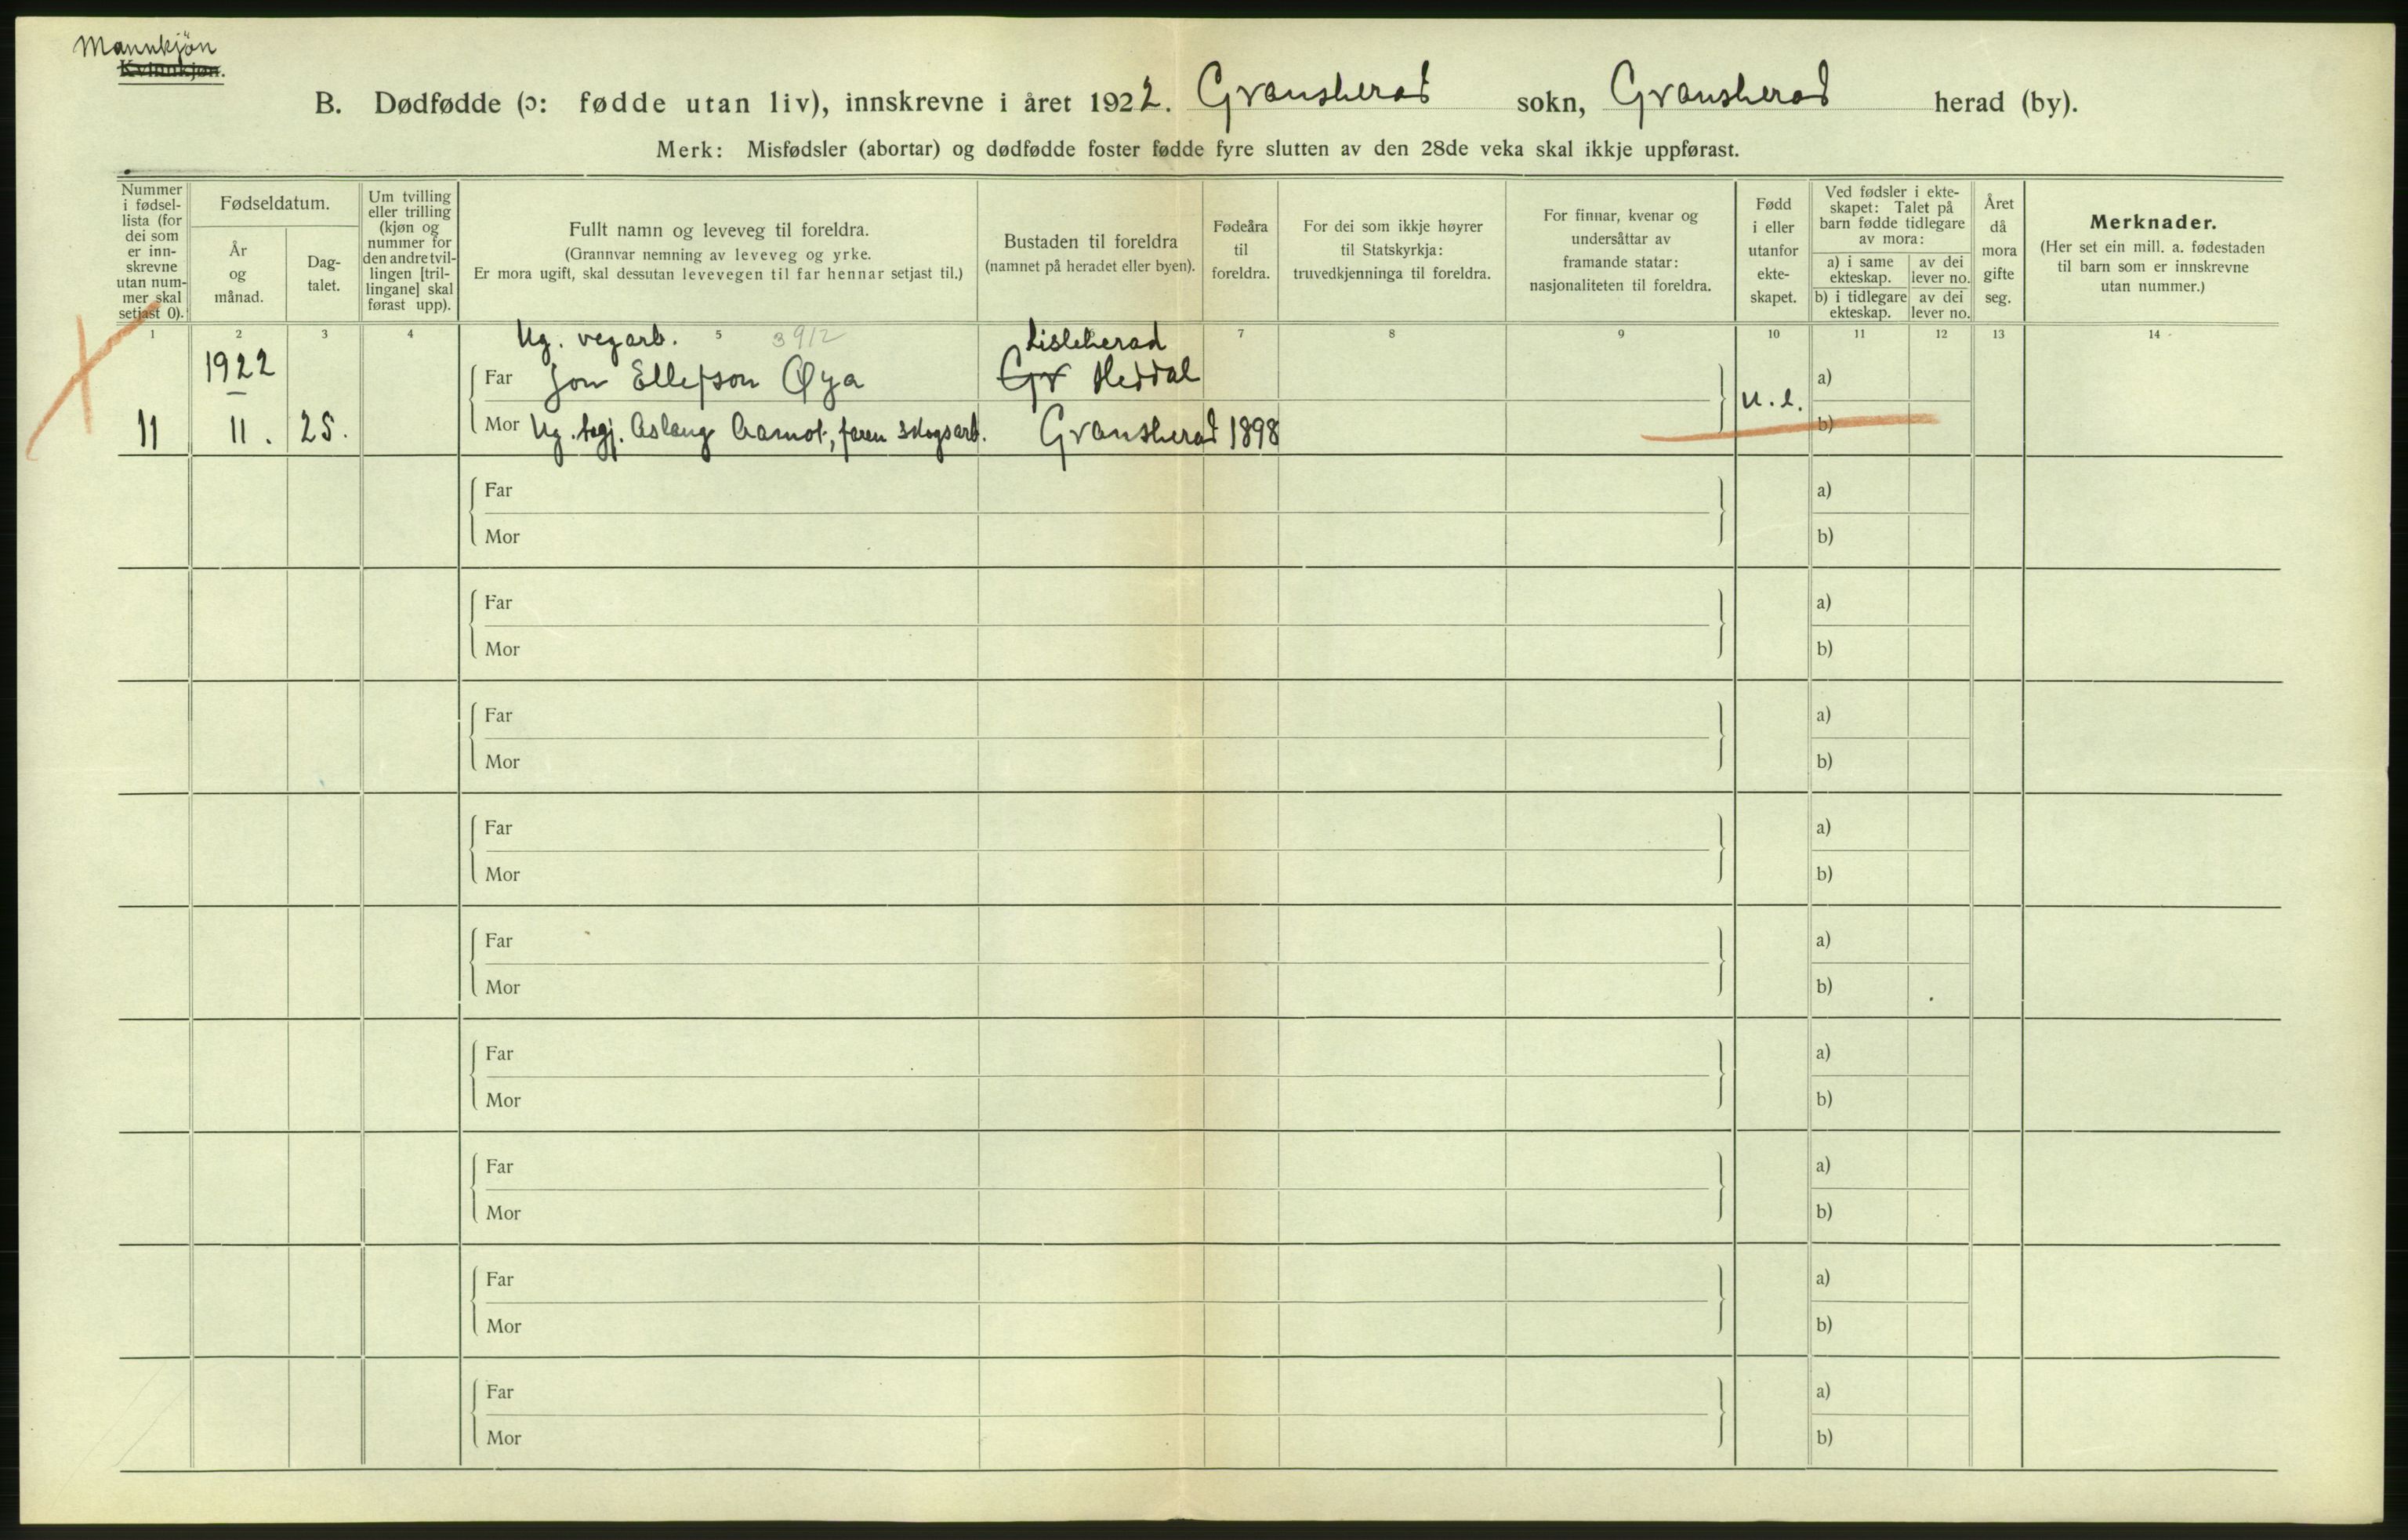 Mannkjön
Kvinnkjøn.
B. Dødfødde (ɔ: fødde utan liv), innskrevne i året 1922. Gransherad sokn, Gransherad herad (by).
Merk: Misfødsler (abortar) og dødfødde foster fødde fyre slutten av den 28de veka skal ikkje uppførast.
Nummer i fødsel-lista (for dei som er inn-skrevne utan num-mer skal setjast 0).
Fødseldatum.
År og månad.
Dag-talet.
Um tvilling eller trilling (kjøn og nummer for den andre tvil-lingen [tril-lingane] skal førast upp).
Fullt namn og leveveg til foreldra.
(Grannvar nemning av leveveg og yrke.
Er mora ugift, skal dessutan levevegen til far hennar setjast til.)
Bustaden til foreldra
(namnet på heradet eller byen).
Fødeåra til foreldra.
For dei som ikkje høyrer til Statskyrkja: truvedkjenninga til foreldra.
For finnar, kvenar og undersåttar av framande statar: nasjonaliteten til foreldra.
Fødd i eller utanfor ekte-skapet.
Ved fødsler i ekte-skapet: Talet på barn fødde tidlegare av mora:
a) i same ekteskap.
av dei lever no.
b) i tidlegare ekteskap.
av dei lever no.
Året då mora gifte seg.
Merknader.
(Her set ein mill. a. fødestaden til barn som er innskrevne utan nummer.)
1 2 3 4 5 7 8 9 10 11 12 13 14
Ug. vegarb. 3912 Lisleherad
1922 Far Jon Ellefson Øya Gr Heddal a)
11 11. 25. Mor Ug. Aslaug Aamot, faren skogsarb. Gransherad 1898 u. e. b)
Far a)
Mor b)
Far a)
Mor b)
Far a)
Mor b)
Far a)
Mor b)
Far a)
Mor b)
Far a)
Mor b)
Far a)
Mor b)
Far a)
Mor b)
Far a)
Mor b)